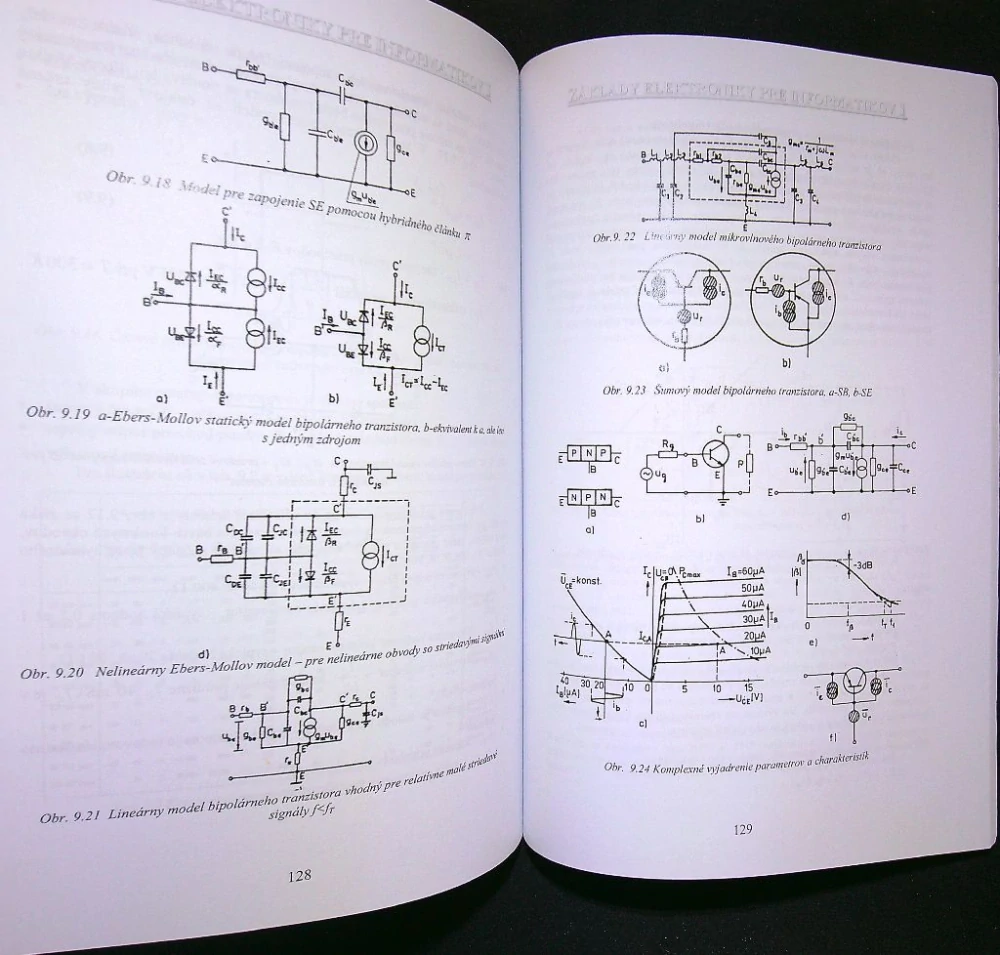 ELEKTRONIKY PRE INFORMATIKOV I
B
r_bb'
C_b'c
C
g_b'e
C_b'e
g_ce
E
E
g_m u_b'e
Obr. 9.18 Model pre zapojenie SE pomocou hybridného článku π
C'
I_C
U_BC
I_EC
α_R
I_CC
I_B
B'
U_BE
I_CC
α_F
I_EC
I_E
E'
a)
C'
I_C
U_BC
I_EC
β_R
I_B
B'
U_BE
I_CC
β_F
I_CT
I_E
I_CT=I_CC-I_EC
E'
b)
Obr. 9.19 a-Ebers-Mollov statický model bipolárneho tranzistora, b-ekvivalent k a, ale len
s jedným zdrojom
C
C_JS
r_C
C'
C_DC
C_JC
I_EC
β_R
B
r_B
B'
I_CT
C_DE
C_JE
I_CC
β_F
E'
r_E
E
d)
Obr. 9.20 Nelineárny Ebers-Mollov model – pre nelineárne obvody so striedavými signálmi
g_bc
B
r_b
B'
C_bc
C'
r_c
C
u_be
g_be
C_be
g_m u_be
g_ce
C_js
E'
r_e
E
Obr. 9.21 Lineárny model bipolárneho tranzistora vhodný pre relatívne malé striedavé
signály f<f_T
128
ZÁKLADY ELEKTRONIKY PRE INFORMATIKOV I
B
L_1
r_b1
r_b2
C
C_1
C_2
C_3
C_4
E
Obr.9. 22 Lineárny model mikrovlnového bipolárneho tranzistora
i_e
i_c
u_r
r_b
a)
r_b
u_r
i_b
i_c
b)
Obr. 9.23 Šumový model bipolárneho tranzistora, a-SB, b-SE
E
P N P
C
B
E
N P N
C
B
a)
R_g
u_g
B
C
E
P
b)
g_b'c
i_b
B
r_bb'
b'
C_b'c
i_c
C
g_m u_b'e
u_b'e
g_b'e
C_b'e
g_ce
C_ce
E
E
d)
U_CE=konst.
I_C
U_CB=0
P_Cmax
I_B=60μA
50μA
40μA
30μA
I_B
20μA
10μA
i_c
A
I_CA
A
t
40 30 20 10 0 5 10 15
I_B[μA]
i_b
U_CE[V]
t
c)
|β|
-3dB
0
f_β
f_T f_1
f
e)
i_e
i_c
u_r
f)
Obr. 9.24 Komplexné vyjadrenie parametrov a charakteristík
129